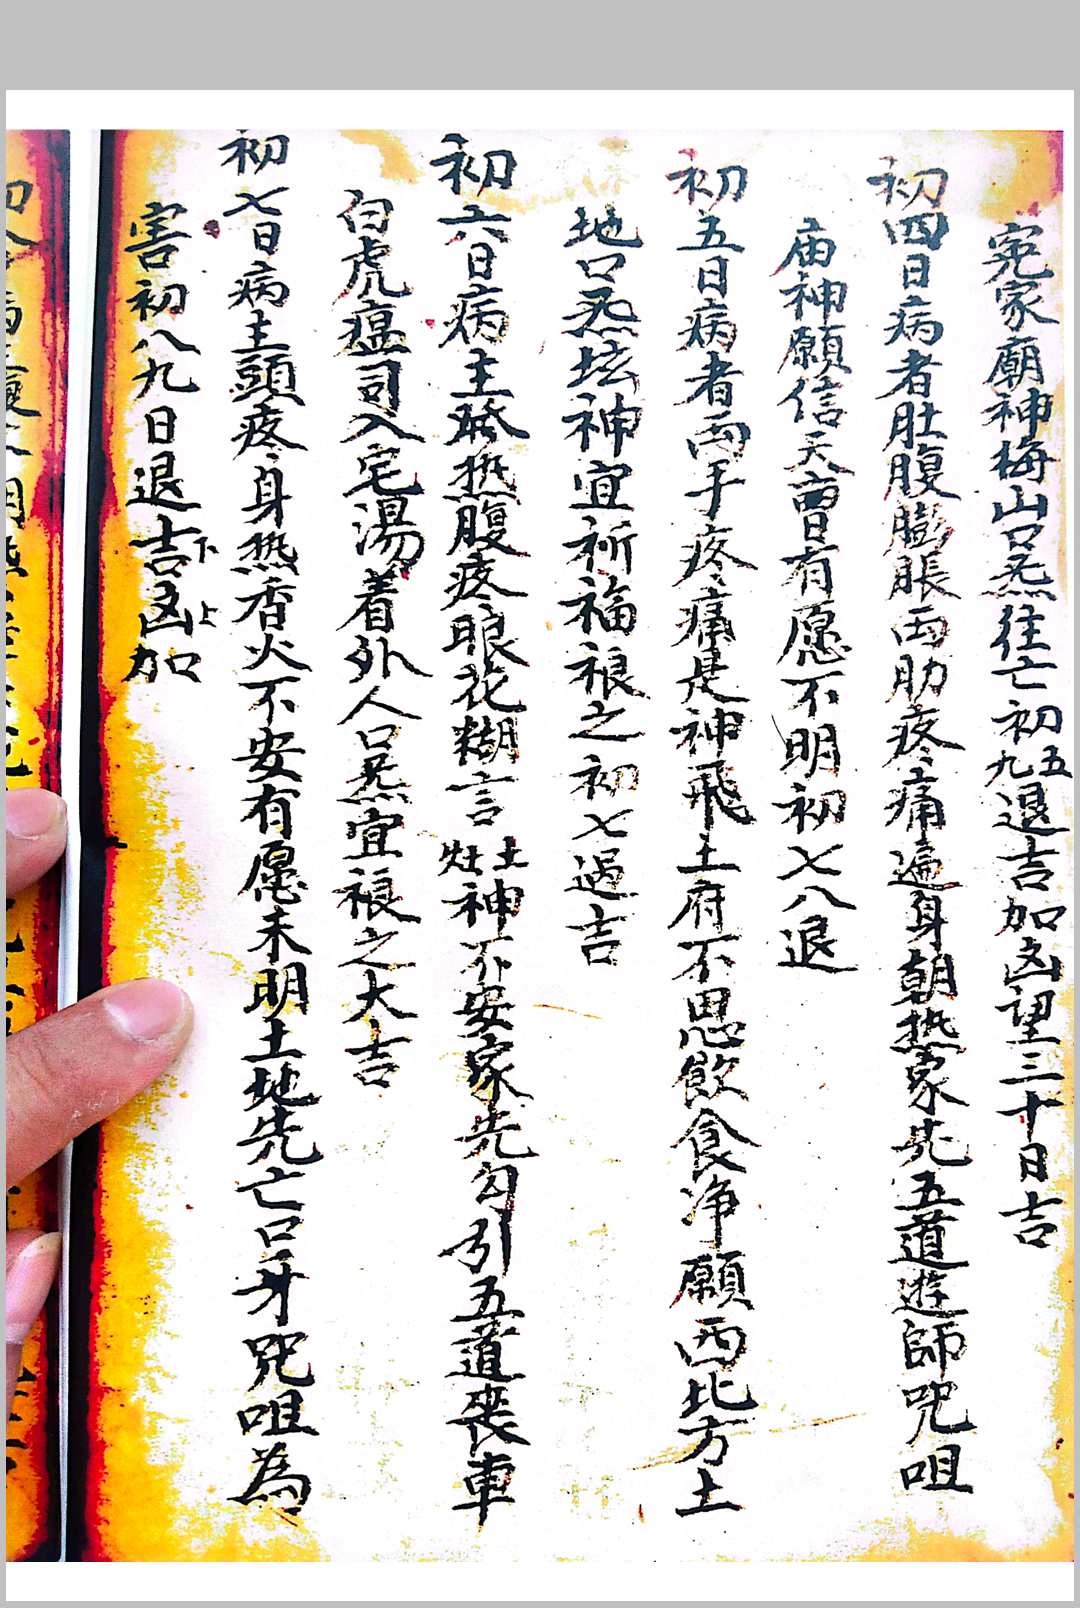 冤家廟神梅山口炁往亡初五九退吉加凶望三十日吉
初四日病者肚腹膨脹両肋疼痛遍身朝热家先五道遊師咒咀
庙神願信天曹有愿不明初七八退
初五日病者両手疼痛是神飛土府不思飲食净願西北方土
地口炁坛神宜祈福禳之初七過吉
初六日病主發热腹疼眼花糊言土灶神不安家先勾引五道喪車
白虎瘟司入宅湯着外人口炁宜禳之大吉
初七日病主頭疼身热香火不安有愿未明土地先亡口牙咒咀為
害初八九日退吉下凶上加